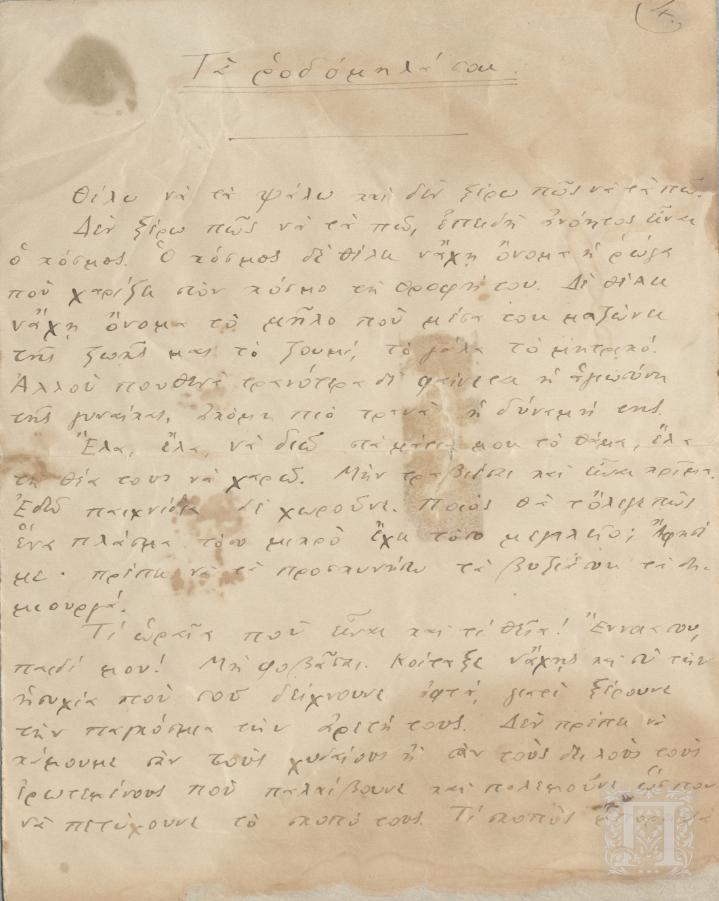 Τὰ ῥοδόμηλά σου.
Θέλω νὰ τὰ ψάλω καὶ δὲν ξέρω πῶς νὰ τὰ πῶ.
Δὲν ξέρω πῶς νὰ τὰ πῶ, ἐπειδὴ ἀνόητος εἶναι
ὁ κόσμος. Ὁ κόσμος δὲ θέλει νἄχῃ ὄνομα ἡ ῥώγα
ποὺ χαρίζει στὸν κόσμο τὴ θροφή του. Δὲ θέλει
νἄχῃ ὄνομα τὸ μῆλο ποὺ μέσα του μαζώνει
τῆς ζωῆς μας τὸ ζουμί, τὸ γάλα τὸ μητρικό.
Ἀλλοῦ πουθενὰ τρανώτερα δὲ φαίνεται ἡ ἁγιωσύνη
τῆς γυναίκας, ἀκόμη πιὸ τρανὰ ἡ δύναμή της.
Ἔλα, ἔλα, νὰ διῶ στὰ μάτια μου τὸ θάμα, ἔλα
τὴ θέα τους νὰ χαρῶ. Μὴν τραβιέσαι καὶ εἶναι κρῖμα.
Ἐδῶ παιχνίδια δὲ χωροῦνε. Ποιὸς θὰ τὄλεγε πῶς
ἕνα πλάσμα τόσο μικρὸ ἔχει τόσο μεγαλεῖο; Ἄφησέ
με· πρέπει νὰ τὰ προσκυνήσω τὰ βυζιά σου τὰ δη-
μιουργά.
Τί ὡραῖα ποὺ εἶναι καὶ τί θεῖα! Ἔννοια σου,
παιδί μου! Μὴ φοβᾶσαι. Κοίταξε νἄχῃς καὶ σὺ τὴν
ἡσυχία ποὺ σοῦ δείχνουνε ἀφτά, γιατὶ ξέρουνε
τὴν παγκόσμια τὴν ἀρετή τους. Δὲν πρέπει νὰ
κάμουμε σὰν τοὺς χυδαίους ἢ σὰν τοὺς δειλοὺς τοὺς
ἐρωτεμένους ποὺ παλαίβουνε καὶ πολεμοῦνε ὥσπου
νὰ πετύχουνε τὸ σκοπό τους. Τί σκοπὸς
Π